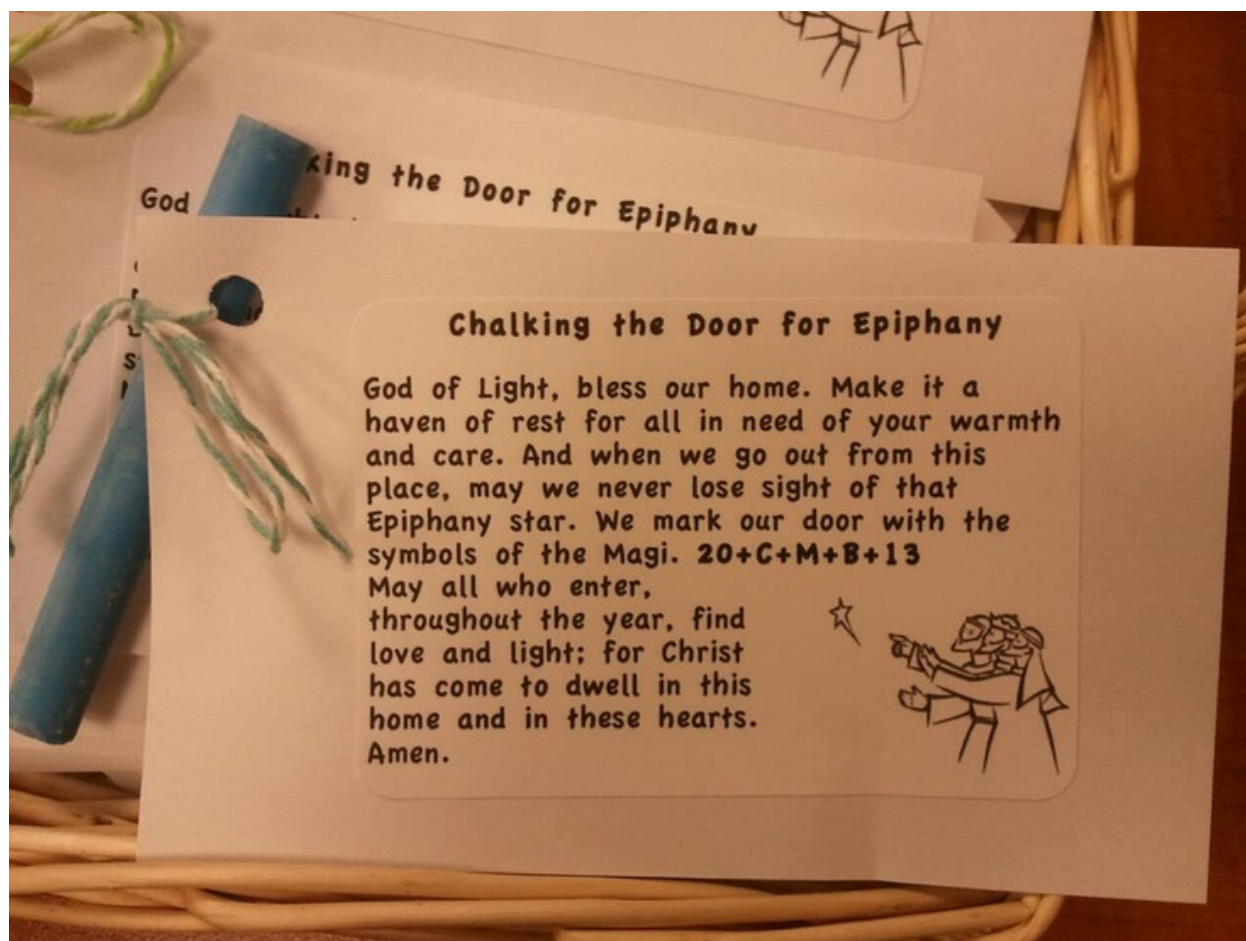 king the Door for Epiphany
God
Chalking the Door for Epiphany
God of Light, bless our home. Make it a
haven of rest for all in need of your warmth
and care. And when we go out from this
place, may we never lose sight of that
Epiphany star. We mark our door with the
symbols of the Magi. 20+C+M+B+13
May all who enter,
throughout the year, find
love and light; for Christ
has come to dwell in this
home and in these hearts.
Amen.